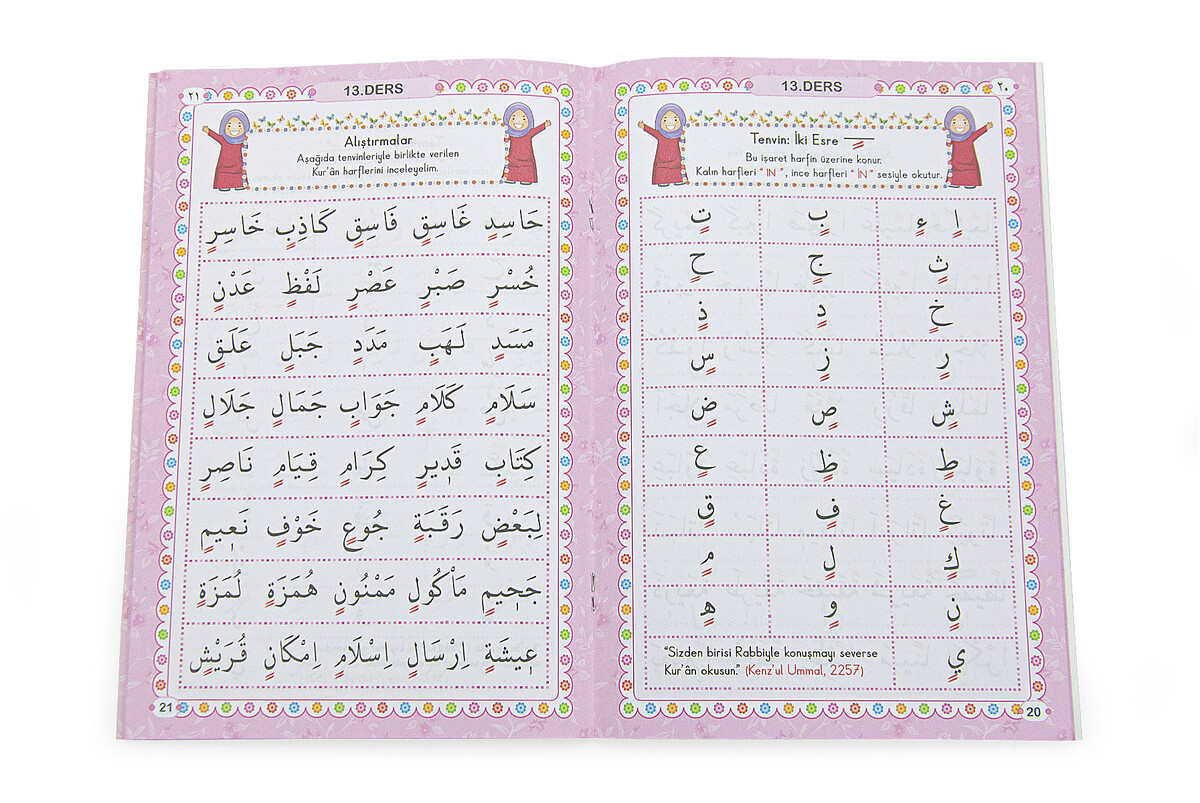 ٢٠
13.DERS
Tenvin: İki Esre ٍ
Bu işaret harfin üzerine konur.
Kalın harfleri “ IN ”, ince harfleri “ İN ” sesiyle okutur.
اٍ ءٍ بٍ تٍ
ثٍ جٍ حٍ
خٍ دٍ ذٍ
رٍ زٍ سٍ
شٍ صٍ ضٍ
طٍ ظٍ عٍ
غٍ فٍ قٍ
كٍ لٍ مٍ
نٍ وٍ هٍ
يٍ
“Sizden birisi Rabbiyle konuşmayı severse
Kur’ân okusun.” (Kenz’ul Ummal, 2257)
20
٢١
13.DERS
Alıştırmalar
Aşağıda tenvinleriyle birlikte verilen
Kur’ân harflerini inceleyelim.
حَاسِدٍ غَاسِقٍ فَاسِقٍ كَاذِبٍ خَاسِرٍ
خُسْرٍ صَبْرٍ عَصْرٍ لَفْظٍ عَدْنٍ
مَسَدٍ لَهَبٍ مَدَدٍ جَبَلٍ عَلَقٍ
سَلَامٍ كَلَامٍ جَوَابٍ جَمَالٍ جَلَالٍ
كِتَابٍ قَدِيرٍ كِرَامٍ قِيَامٍ نَاصِرٍ
لِبَعْضٍ رَقَبَةٍ جُوعٍ خَوْفٍ نَعِيمٍ
جَحِيمٍ مَأْكُولٍ مَمْنُونٍ هُمَزَةٍ لُمَزَةٍ
عِيشَةٍ اِرْسَالٍ اِسْلَامٍ اِمْكَانٍ قُرَيْشٍ
21